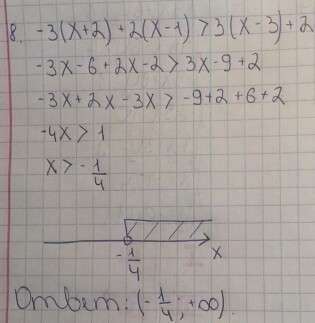 8. -3(x+2)+2(x-1)>3(x-3)+2
-3x-6+2x-2>3x-9+2
-3x+2x-3x>-9+2+6+2
-4x>1
x>-1/4
-1/4 x
Ответ: (-1/4; +∞).